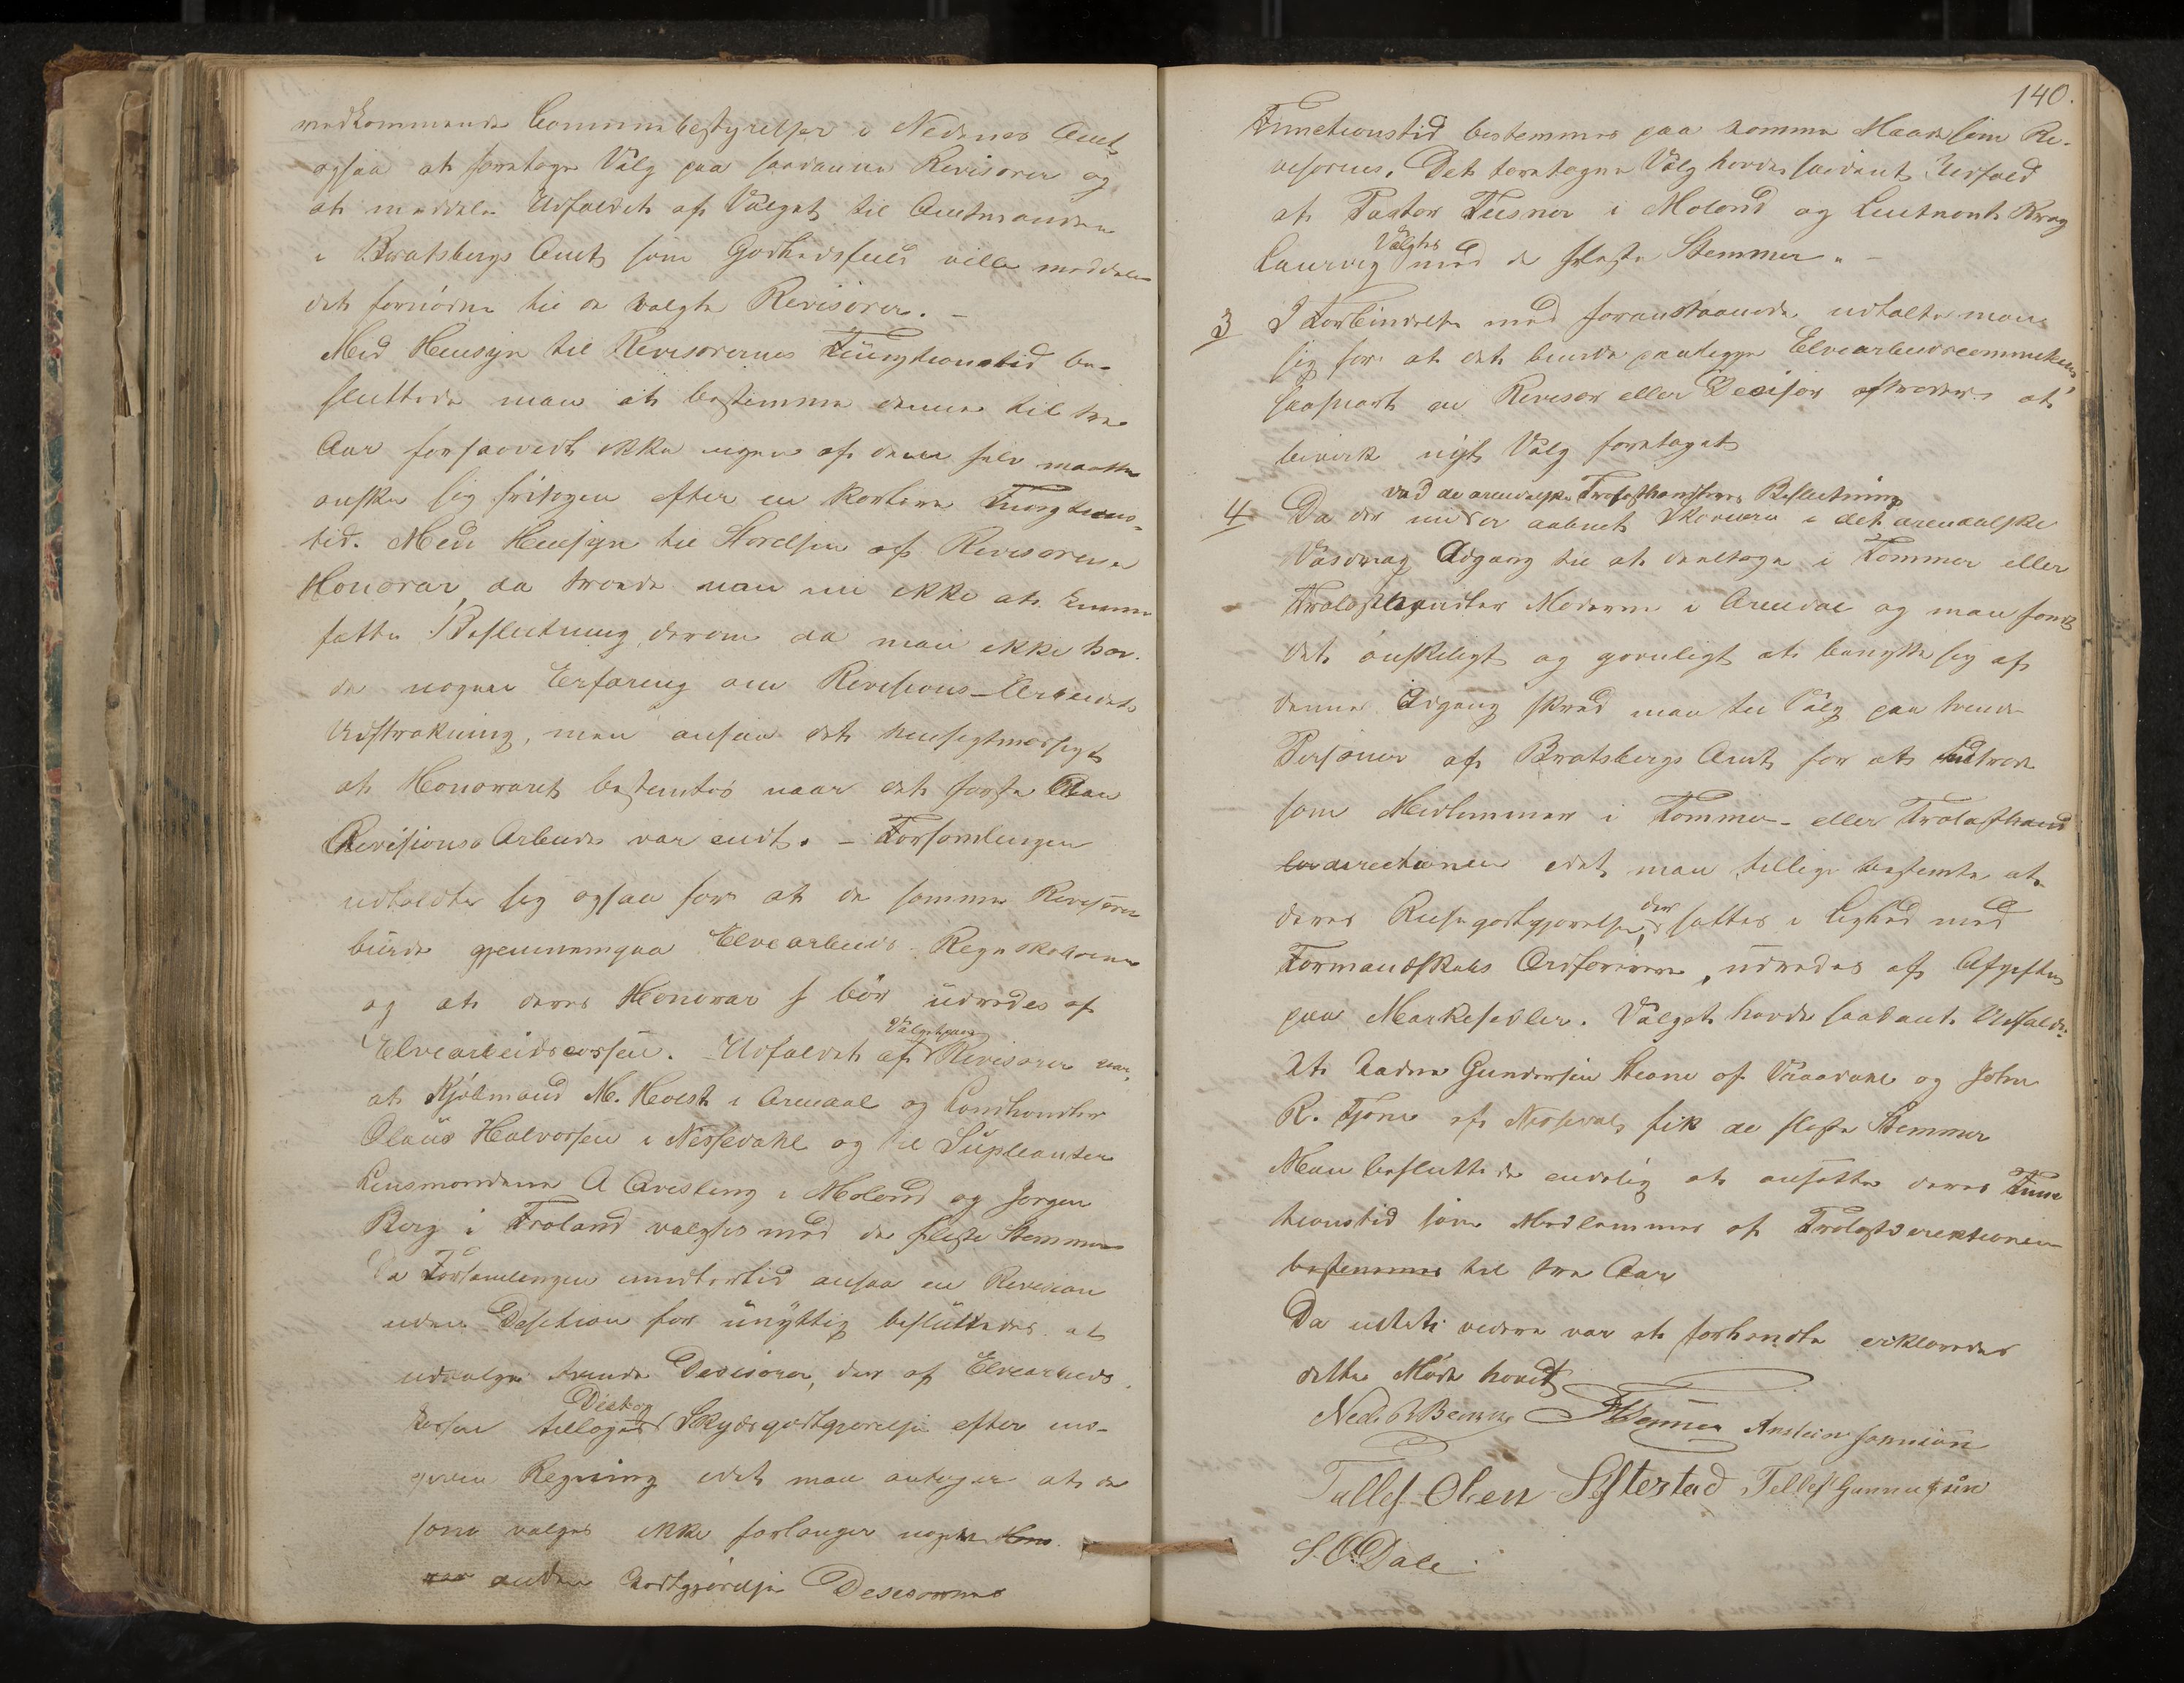 vedkommende Communebestyrelser i Nedenes Amt
ogsaa at foretage Valg paa saadanne Revisorer og
at meddele Udfaldet af Valget til Amtmanden
i Bratsbergs Amt som Godhedsfuld ville meddele
det fornödne til de valgte Revisorer. –
Med Hensyn til Revisorernes Fungtionstid be-
sluttede man at bestemme denne til tre
Aar forsaavidt ikke nogen af dem selv maatte
önske sig fritagen efter en kortere Fungtions-
tid. Med Hensyn til Störelsen af Revisorernes
Honorar, da troede man nu ikke at kunne
fatte Beslutning derom da man ikke hav-
de nogen Erfaring om Revisions-Arbeidets
Udstrækning, men ansaa det hensigtmæssigt
at Honoraret bestemtes naar det förste Aars
Revisions Arbeide var endt. – Forsamlingen
udtaldte sig ogsaa for at de samme Revisorer
burde gjennemgaa Elvearbeids-Regnskaberne
og at deres Honorar bör udredes af
Elvearbeidscassen. – Udfaldet af Valget paa Revisorer var,
at Kjöbmand M. Hvest i Arendal og Landhandler
Olaüs Halvorsen i Nissedahl og til Supleanter
Lensmændene A Qvisling i Moland og Jørgen
Berg i Froland valgtes med de fleste Stemmer
Da Forsamlingen imidlertid ansaa en Revision
uden Desition for unyttig besluttedes at
udvælge tvende Decisorer, der af Elvearbeids
kassen tillægges Diet og Skydsgodtgjörelse efter ind-
given Regning idet man antager at de
som valges ikke forlanger nogen Hono-
rar anden Godtgjörelse Desisorernes
140.
Functionstid bestemmes paa samme Maade som Re-
visorens. Det foretagne Valg havde saadant Udfald
at Pastor Tusner i Moland og Leutnant Krag
Laurvig Valgtes med de fleste Stemmer. –
3 I Forbindelse med foranstaaende udtalte man
sig for at det burde paalægges Elvearbeidscommitteen,
saasnart en Revisor eller Decisor aftræder at
bevirke nyt Valg foretaget
4 Da der ved de arendalske Trælasthandleres Beslutning under aabnet Skoveiere i det arendalske
Vasdrag Adgang til at deeltage i Tömmer eller
Trælasthandler Möderne i Arendal og man fandt
det önskeligt og gavnligt at benytte sig af
denne Adgang skred man til Valg paa tvende
Personer af Bratsbergs Amt for at indtræde
som Medlemmer i Tömmer- eller Trælasthand
lerdirectionen idet man tillige bestemte at
deres Reisegodtgjörelse, der sættes i Lighed med
Formandskabs Ordförerne, udredes af Afgiften
paa Mærkesedler. Valget havde saadant Udfald:
At Aadne Gundersen Steane af Vraadahl og John
R. Tjönn af Nissedal fik de fleste Stemmer
Man besluttede endelig at ansætte deres Func
tionstid som Medlemmer af Trælastdirektionen
bestemmes til tre Aar
Da intet videre var at forhandle erklæredes
dette Möde hævet
Tallef Olsen Seftestad Tellef Gunnufsön
S. O. Dale